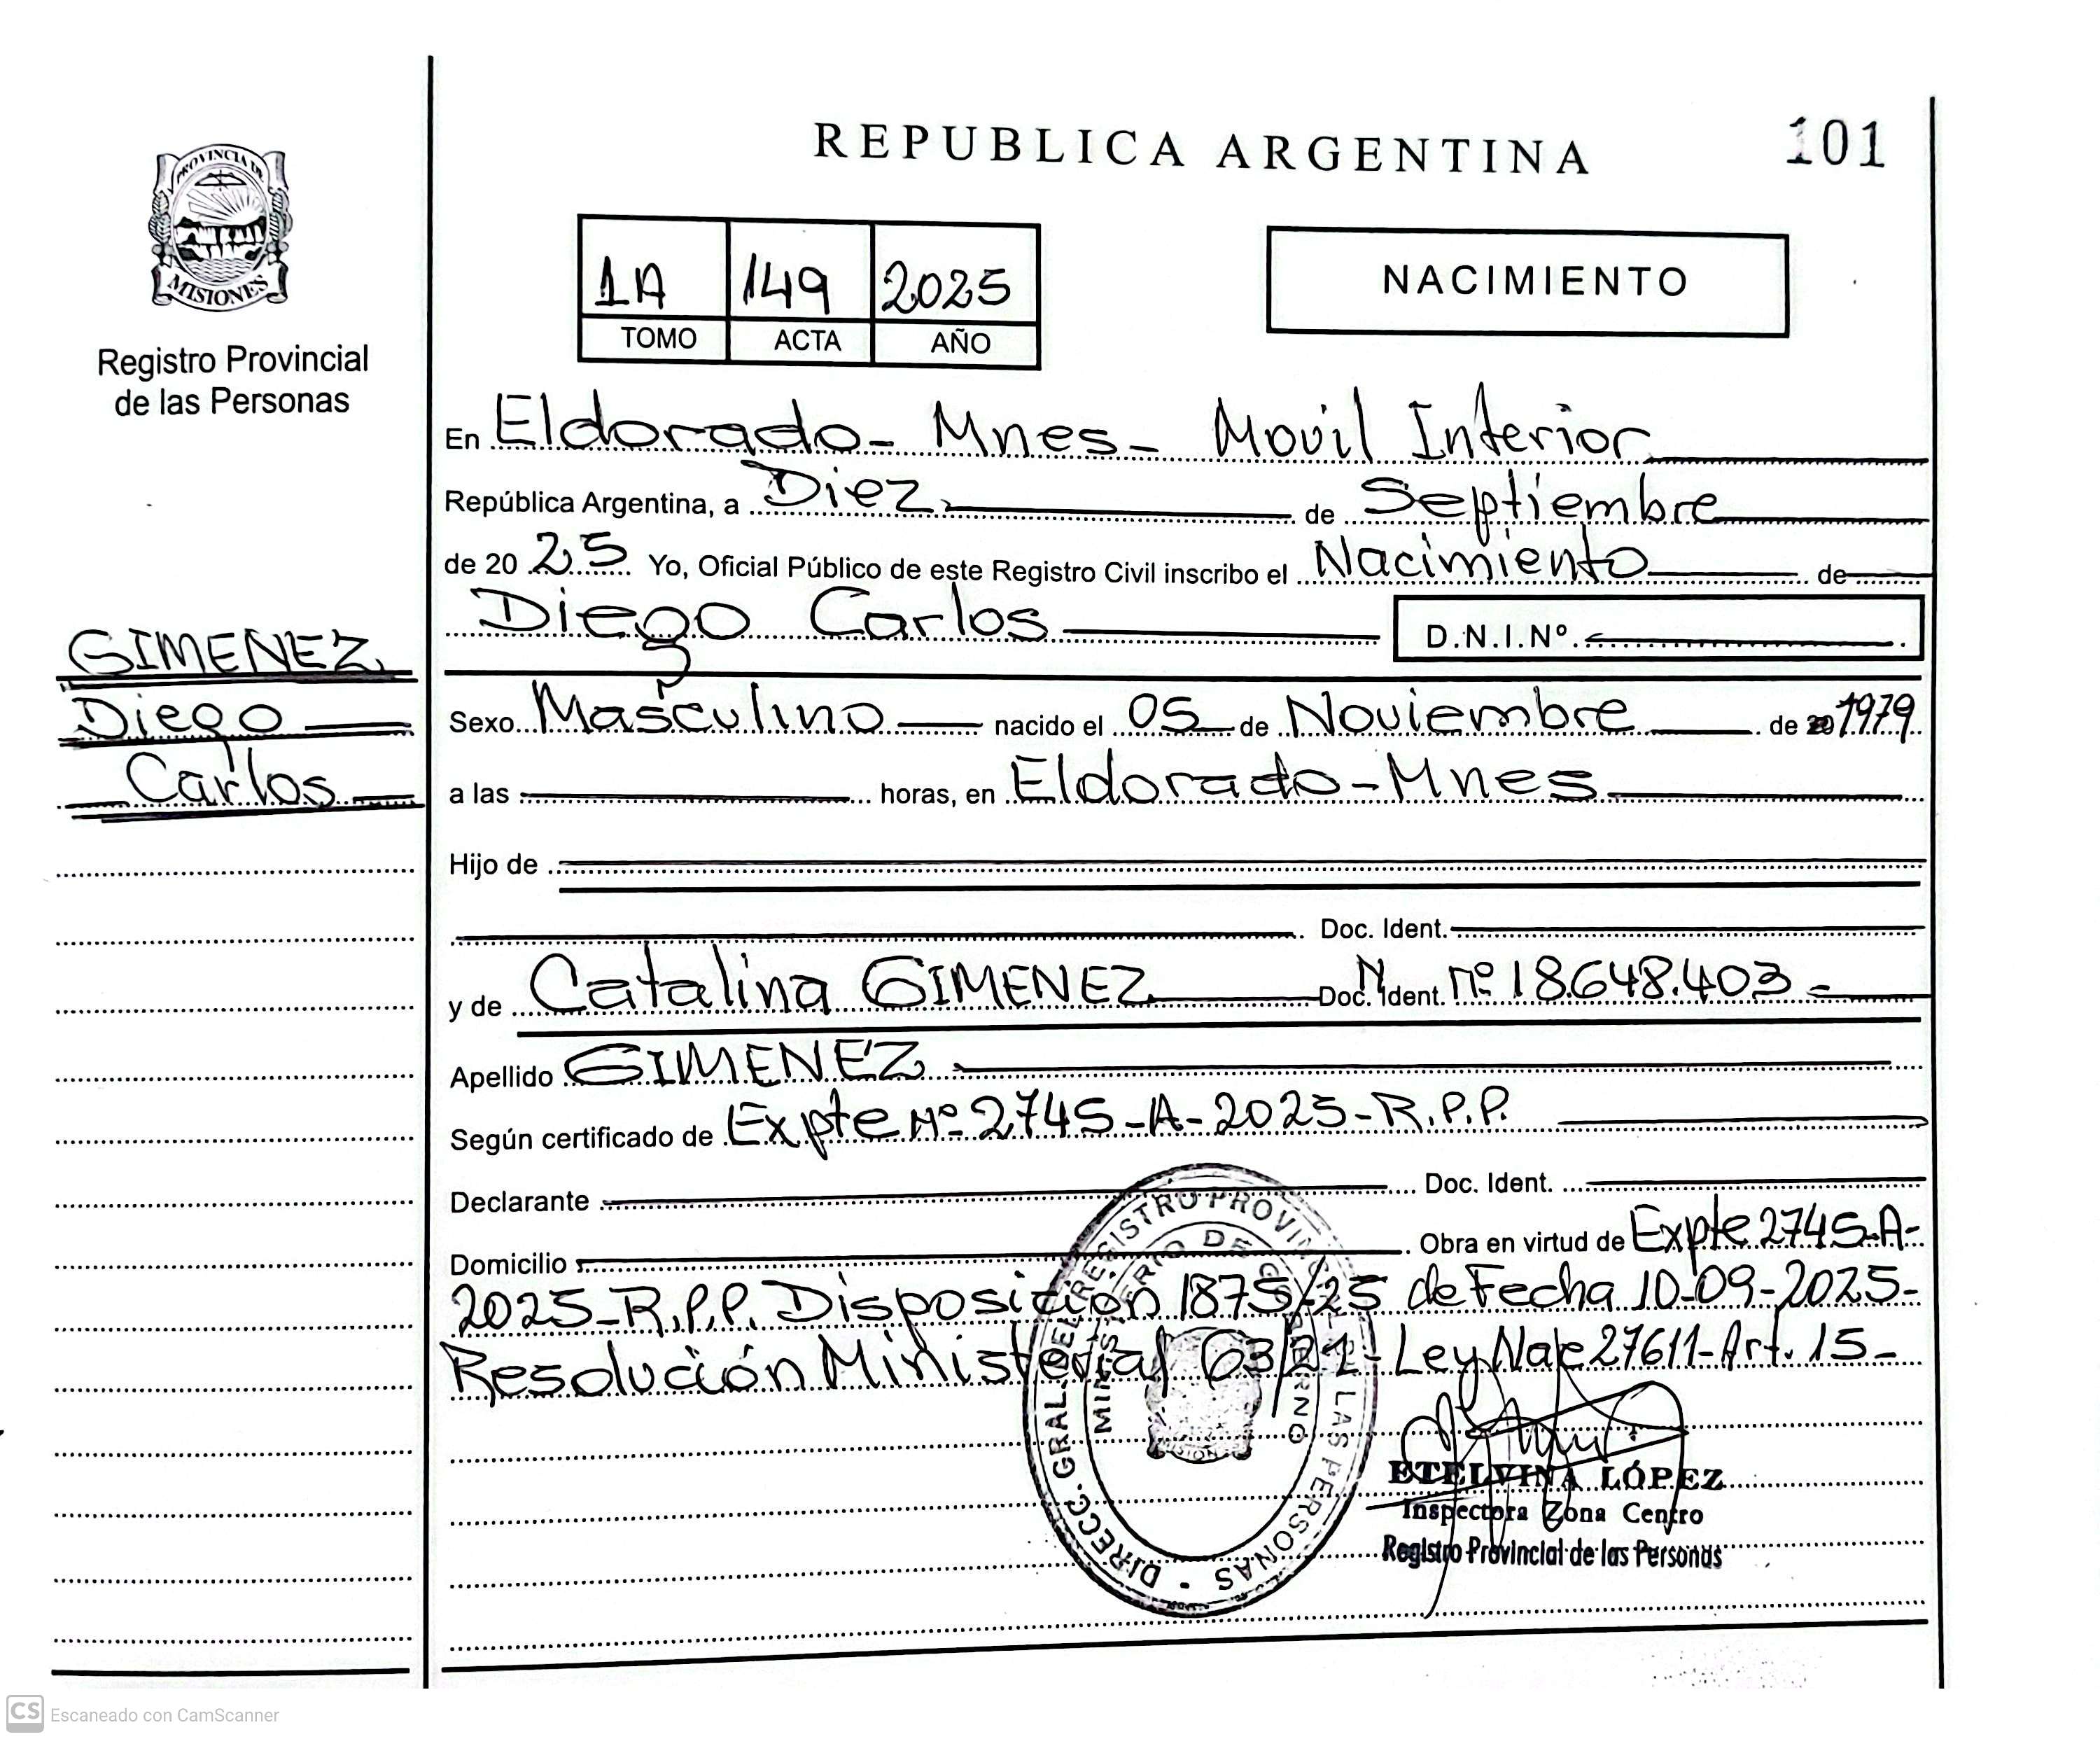 REPUBLICA ARGENTINA
101
PROVINCIA DE
MISIONES
Registro Provincial
de las Personas
1A 149 2025
TOMO ACTA AÑO
NACIMIENTO
En Eldorado - Mnes - Movil Interior
República Argentina, a Diez de Septiembre
de 2025 Yo, Oficial Público de este Registro Civil inscribo el Nacimiento de
Diego Carlos D.N.I.Nº
GIMENEZ
Diego
Carlos
Sexo Masculino nacido el 05 de Noviembre de 1979
a las horas, en Eldorado-Mnes
Hijo de
Doc. Ident.
y de Catalina GIMENEZ Doc. Ident. M Nº 18.648.403 -
Apellido GIMENEZ
Según certificado de Expte Nº 2745-A-2025-R.P.P.
Declarante Doc. Ident.
Domicilio Obra en virtud de Expte 2745-A-
2025-R.P.P. Disposición 1875/25 de Fecha 10-09-2025-
Resolución Ministerial 63/21- Ley Nac 27611-Art. 15-
DIRECC. GRAL. DEL REGISTRO PROVINCIAL DE LAS PERSONAS
MINISTERIO DE GOBIERNO
ETELVINA LÓPEZ
Inspectora Zona Centro
Registro Provincial de las Personas
CS Escaneado con CamScanner